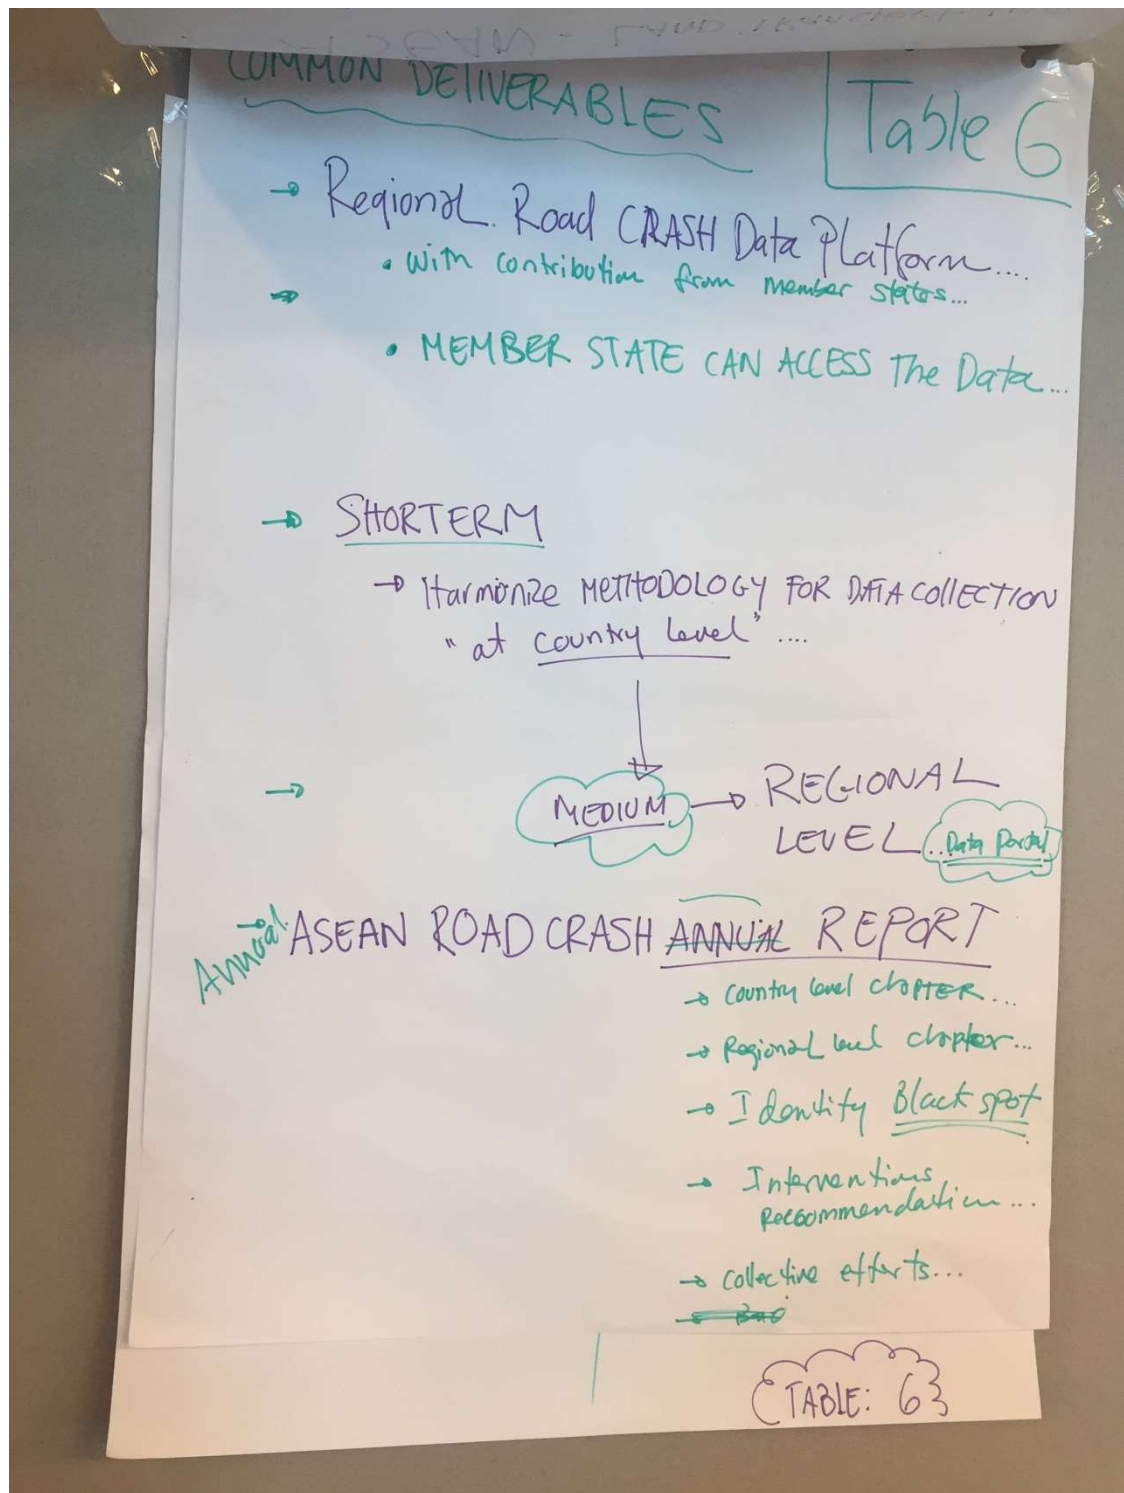 ASEAN - LAND TRANSPORT
COMMON DELIVERABLES
Table 6
→ Regional Road CRASH Data Platform....
• With contribution from member states...
→
• MEMBER STATE CAN ACCESS The Data...
→ SHORTERM
→ Harmonize METHODOLOGY FOR DATA COLLECTION
"at country level" ....
→ MEDIUM → REGIONAL
LEVEL ...Data Portal
→ Annual ASEAN ROAD CRASH ANNUAL REPORT
→ Country level chaPTER...
→ Regional level chapter...
→ Identify Black spot
→ Interventions
Reccommendation...
→ collective efforts...
TABLE: 6